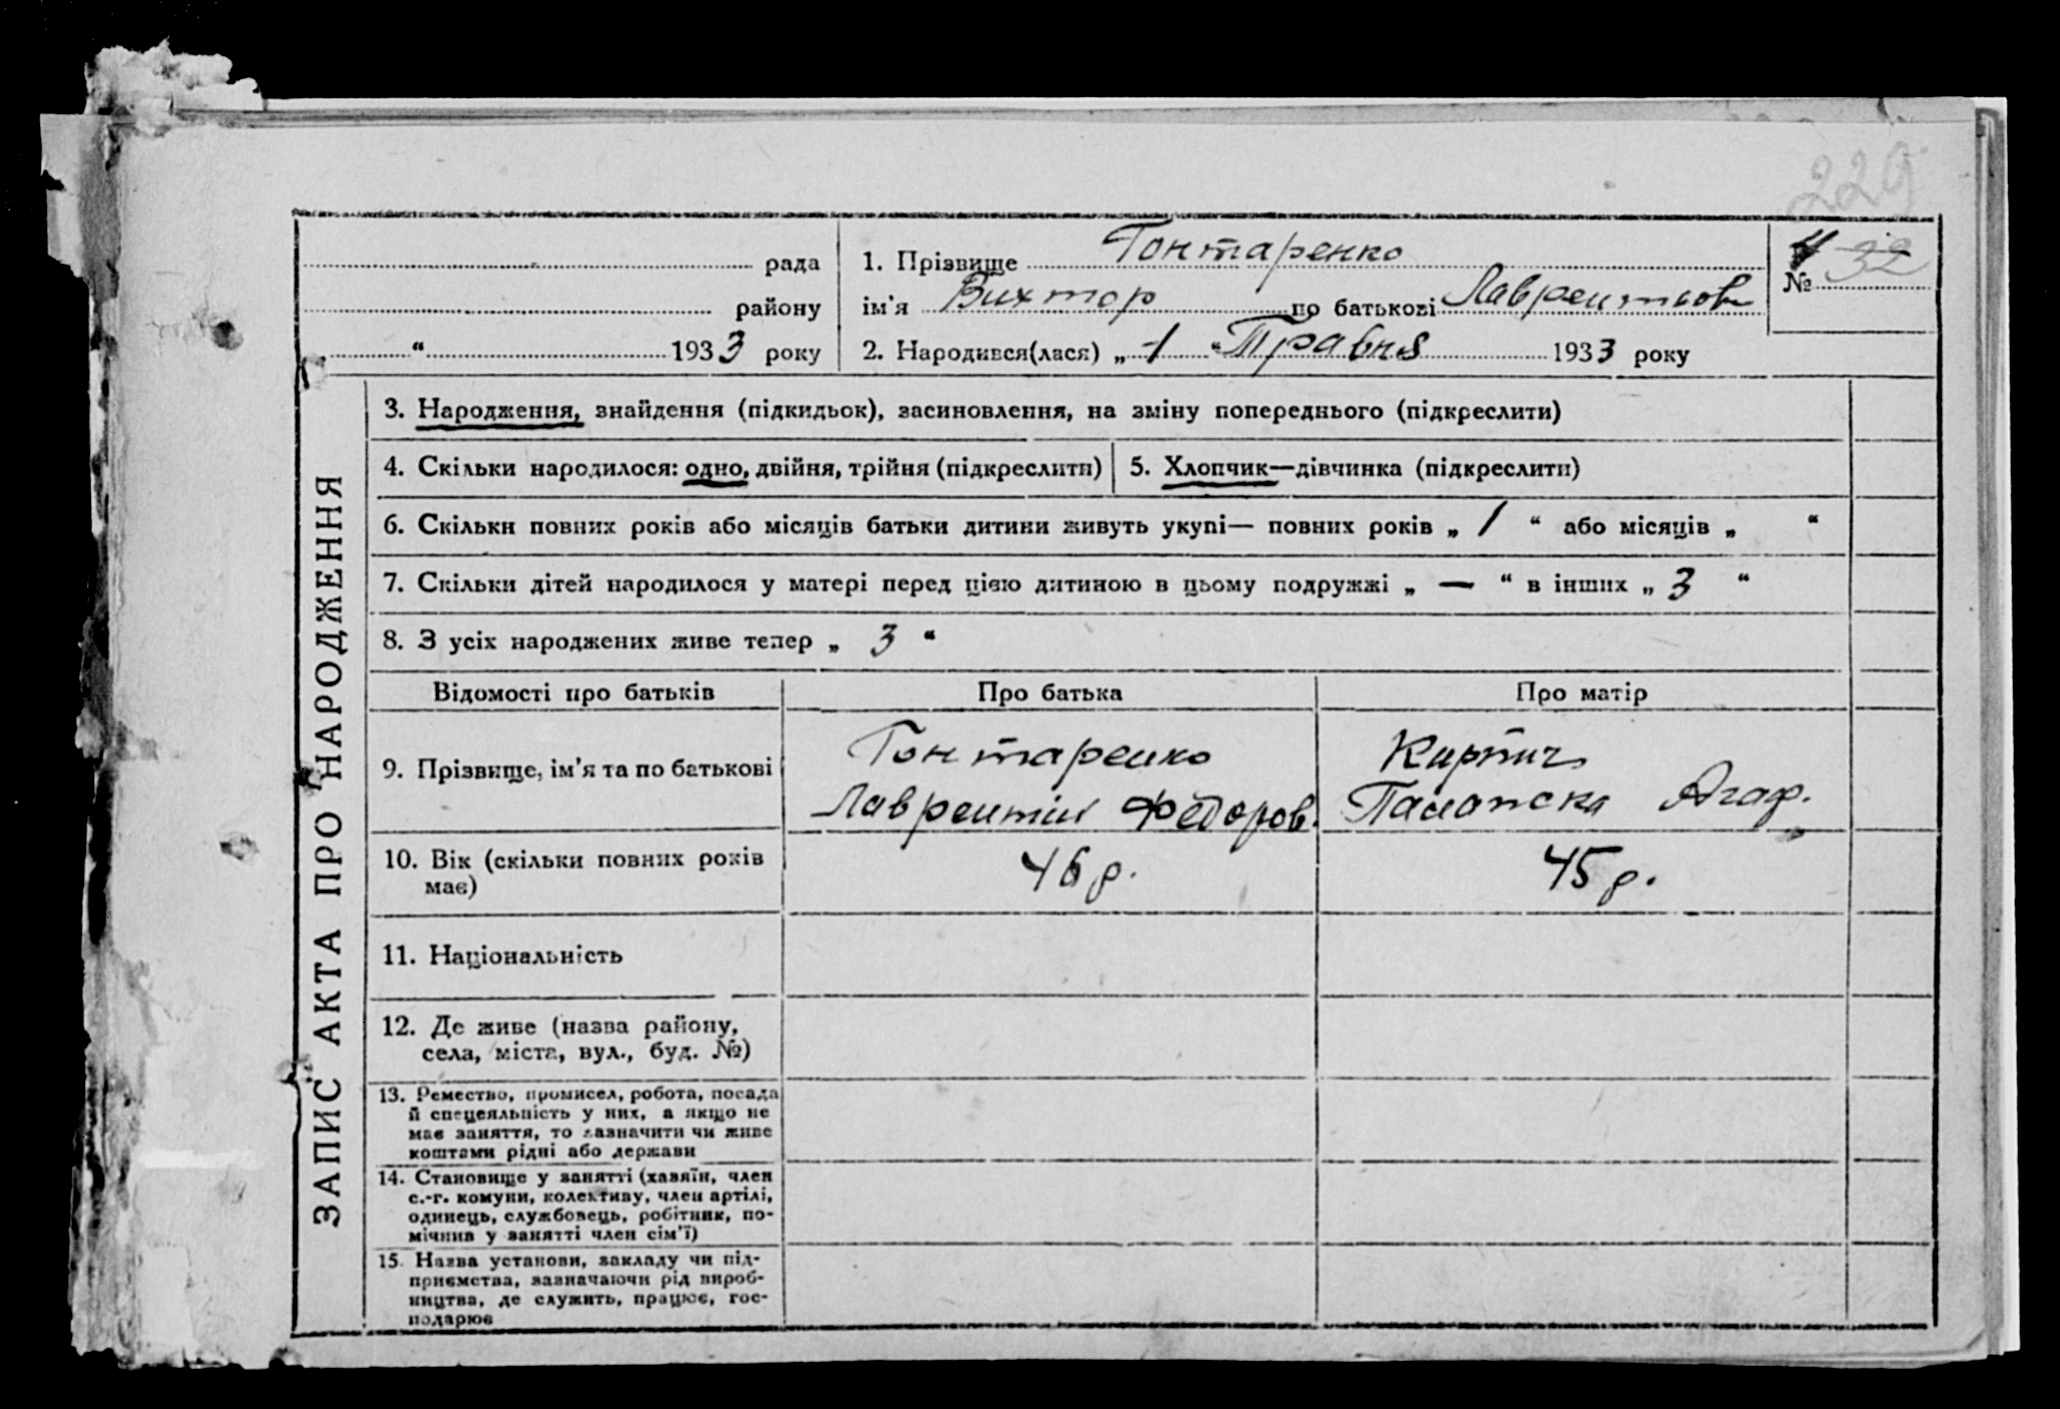 229
рада
району
“ 1933 року
1. Прізвище Гонтаренко
ім'я Вихтор по батькові Лаврентьов
2. Народився(лася) „ 1 “ Травня 1933 року
№ 32
ЗАПИС АКТА ПРО НАРОДЖЕННЯ
3. Народження, знайдення (підкидьок), засиновлення, на зміну попереднього (підкреслити)
4. Скільки народилося: одно, двійня, трійня (підкреслити)
5. Хлопчик—дівчинка (підкреслити)
6. Скільки повних років або місяців батьки дитини живуть укупі— повних років „ 1 “ або місяців „ “
7. Скільки дітей народилося у матері перед цією дитиною в цьому подружжі „ — “ в інших „ 3 “
8. З усіх народжених живе тепер „ 3 “
Відомості про батьків
Про батька
Про матір
9. Прізвище, ім'я та по батькові
Гонтаренко
Лаврентій Федоров.
Кирпич
Агаф.
10. Вік (скільки повних років
має)
46 р.
45 р.
11. Національність
12. Де живе (назва району,
села, міста, вул., буд. №)
13. Ремество, промисел, робота, посада
й спецеяльність у них, а якщо не
має заняття, то зазначити чи живе
коштами рідні або держави
14. Становище у занятті (хазяїн, член
с.-г. комуни, колективу, член артілі,
одинець, службовець, робітник, по-
мічник у занятті член сім'ї)
15. Назва установи, закладу чи під-
приємства, зазначаючи рід вироб-
ництва, де служить, працює, гос-
подарює